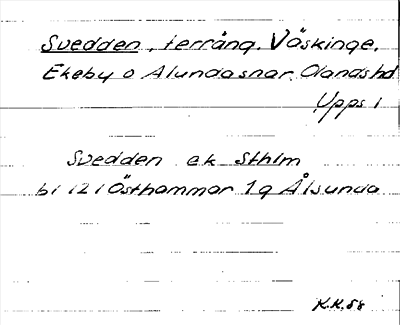 Svedden, terräng. Väskinge,
Ekeby o Alunda snar. Olands hd
Upps l
Svedden ek Sthlm
bl 12 i Östhammar 1q Ålsunda
K.K. 58